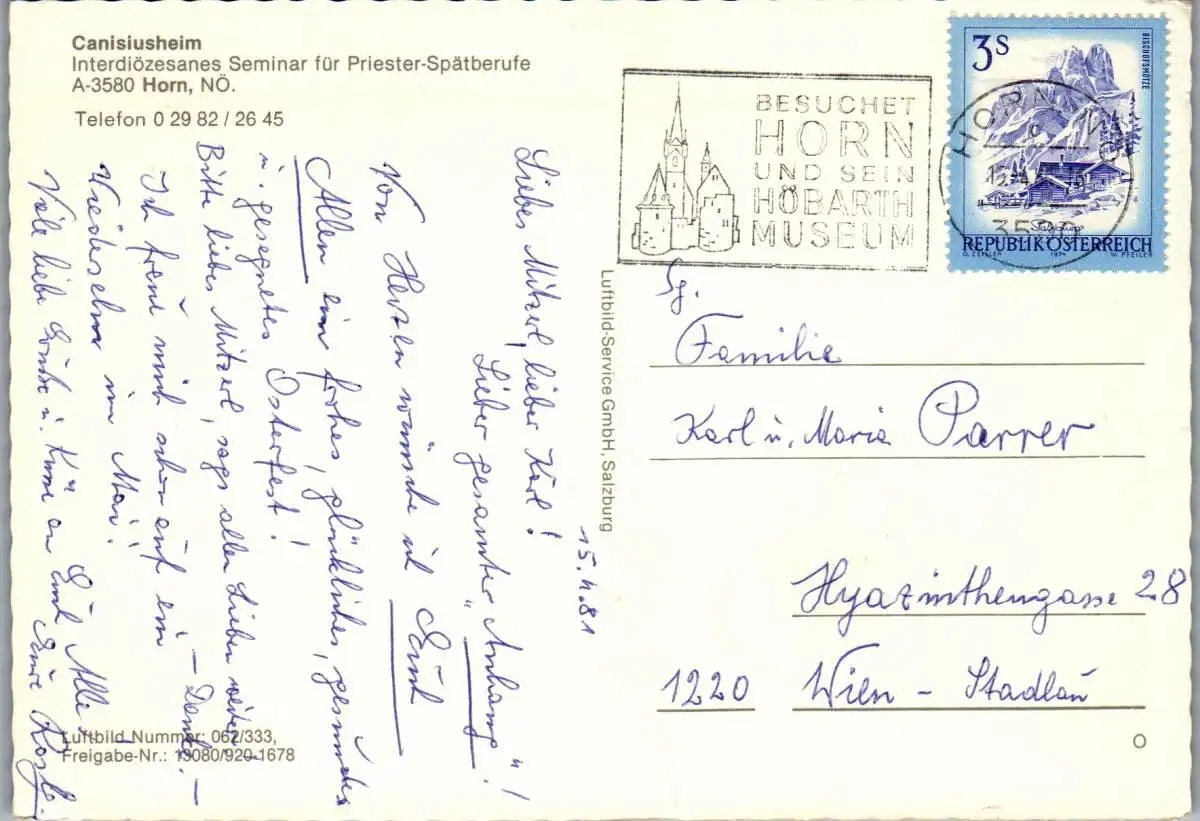 Canisiusheim
Interdiözesanes Seminar für Priester-Spätberufe
A-3580 Horn, NÖ.
Telefon 0 29 82 / 26 45
15.4.81
Liebes Mitzerl, lieber Karl!
Lieber gesamter „Anhang"!
Von Herzen wünsche ich Euch
Allen ein frohes, glückliches, gesundes
u. gesegnetes Osterfest!
Bitte liebes Mitzerl, sags allen Lieben weiter – Danke. –
Ich freue mich schon auf ein
Wiedersehn im Mai!
Viele liebe Grüße u. Küsse an Euch Alle,
Eure
Luftbild Nummer: 062/333,
Freigabe-Nr.: 13080/920-1678
Luftbild-Service GmbH, Salzburg
BESUCHET
HORN
UND SEIN
HÖBARTH
MUSEUM
3S
BISCHOFSMÜTZE
HORN
3580
Salzburg
REPUBLIK ÖSTERREICH
O. ZEILLER 1974 W. PFEILER
Sg.
Familie
Karl u. Maria Parrer
Hyazinthengasse 28
1220 Wien – Stadlau